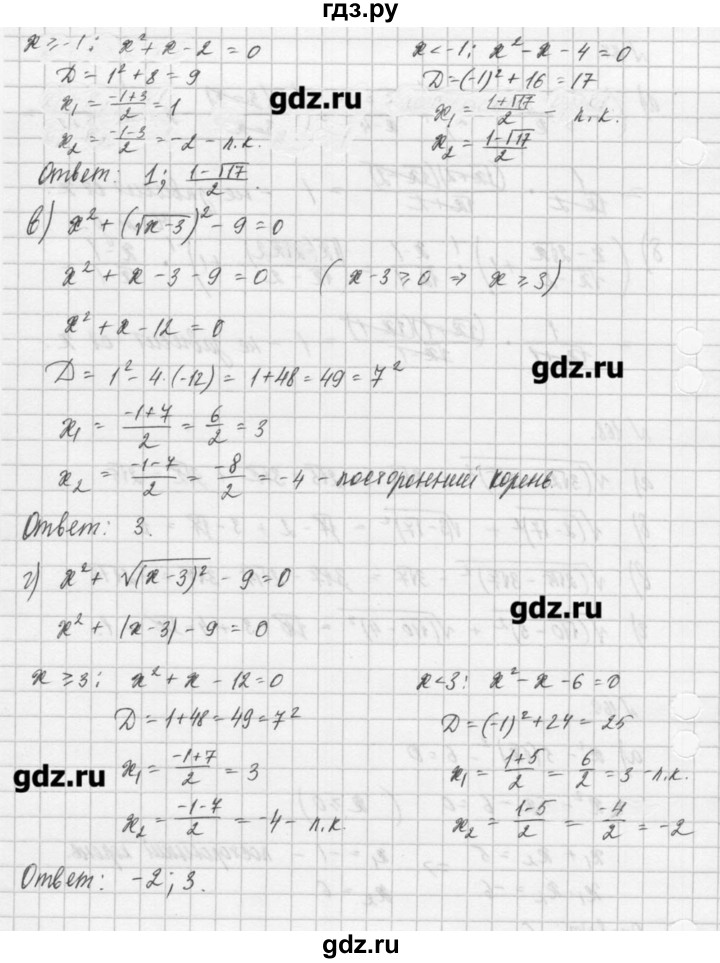 гдз.ру
x ≥ -1; x² + x - 2 = 0
D = 1² + 8 = 9
x₁ = (-1+3)/2 = 1
x₂ = (-1-3)/2 = -2 - п.к.
x < -1; x² - x - 4 = 0
D = (-1)² + 16 = 17
x₁ = (1+√17)/2 - п.к.
x₂ = (1-√17)/2
gdz.ru
Ответ: 1; (1-√17)/2.
в) x² + (√x-3)² - 9 = 0
x² + x - 3 - 9 = 0 (x - 3 ≥ 0 ⇒ x ≥ 3)
x² + x - 12 = 0
D = 1² - 4·(-12) = 1 + 48 = 49 = 7²
gdz.ru
x₁ = (-1+7)/2 = 6/2 = 3
x₂ = (-1-7)/2 = -8/2 = -4 - посторонний корень
Ответ: 3.
г) x² + √(x-3)² - 9 = 0
gdz.ru
x² + |x-3| - 9 = 0
x ≥ 3: x² + x - 12 = 0
D = 1 + 48 = 49 = 7²
x₁ = (-1+7)/2 = 3
x₂ = (-1-7)/2 = -4 - п.к.
x < 3: x² - x - 6 = 0
D = (-1)² + 24 = 25
x₁ = (1+5)/2 = 6/2 = 3 - п.к.
x₂ = (1-5)/2 = -4/2 = -2
gdz.ru
Ответ: -2; 3.
gdz.ru